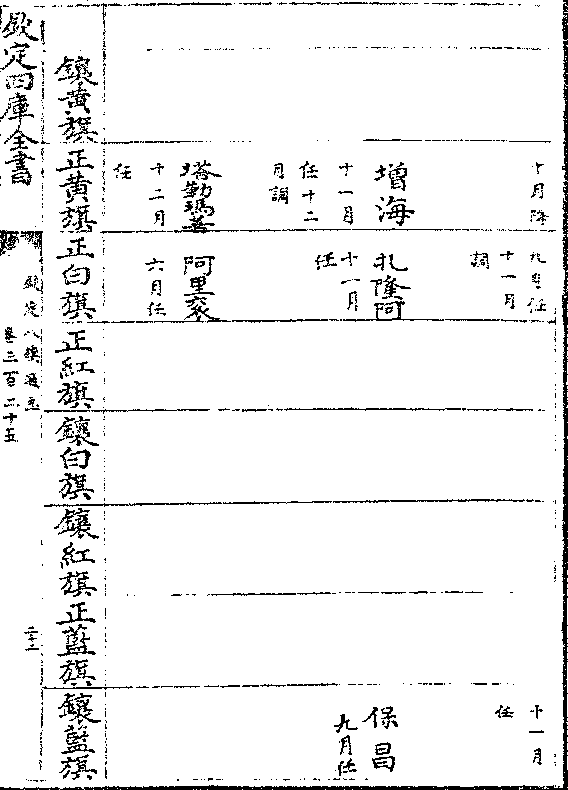 十月降
增海
十一月
任十二
月調
塔勒瑪善
十二月
任
九月任
十一月
調
扎隆阿
十一月
任
阿里袞
六月任
十一月
任
保昌
九月任
鑲黃旗
正黃旗
正白旗
正紅旗
鑲白旗
鑲紅旗
正藍旗
鑲藍旗
欽定四庫全書
欽定八旗通志
卷三百二十五